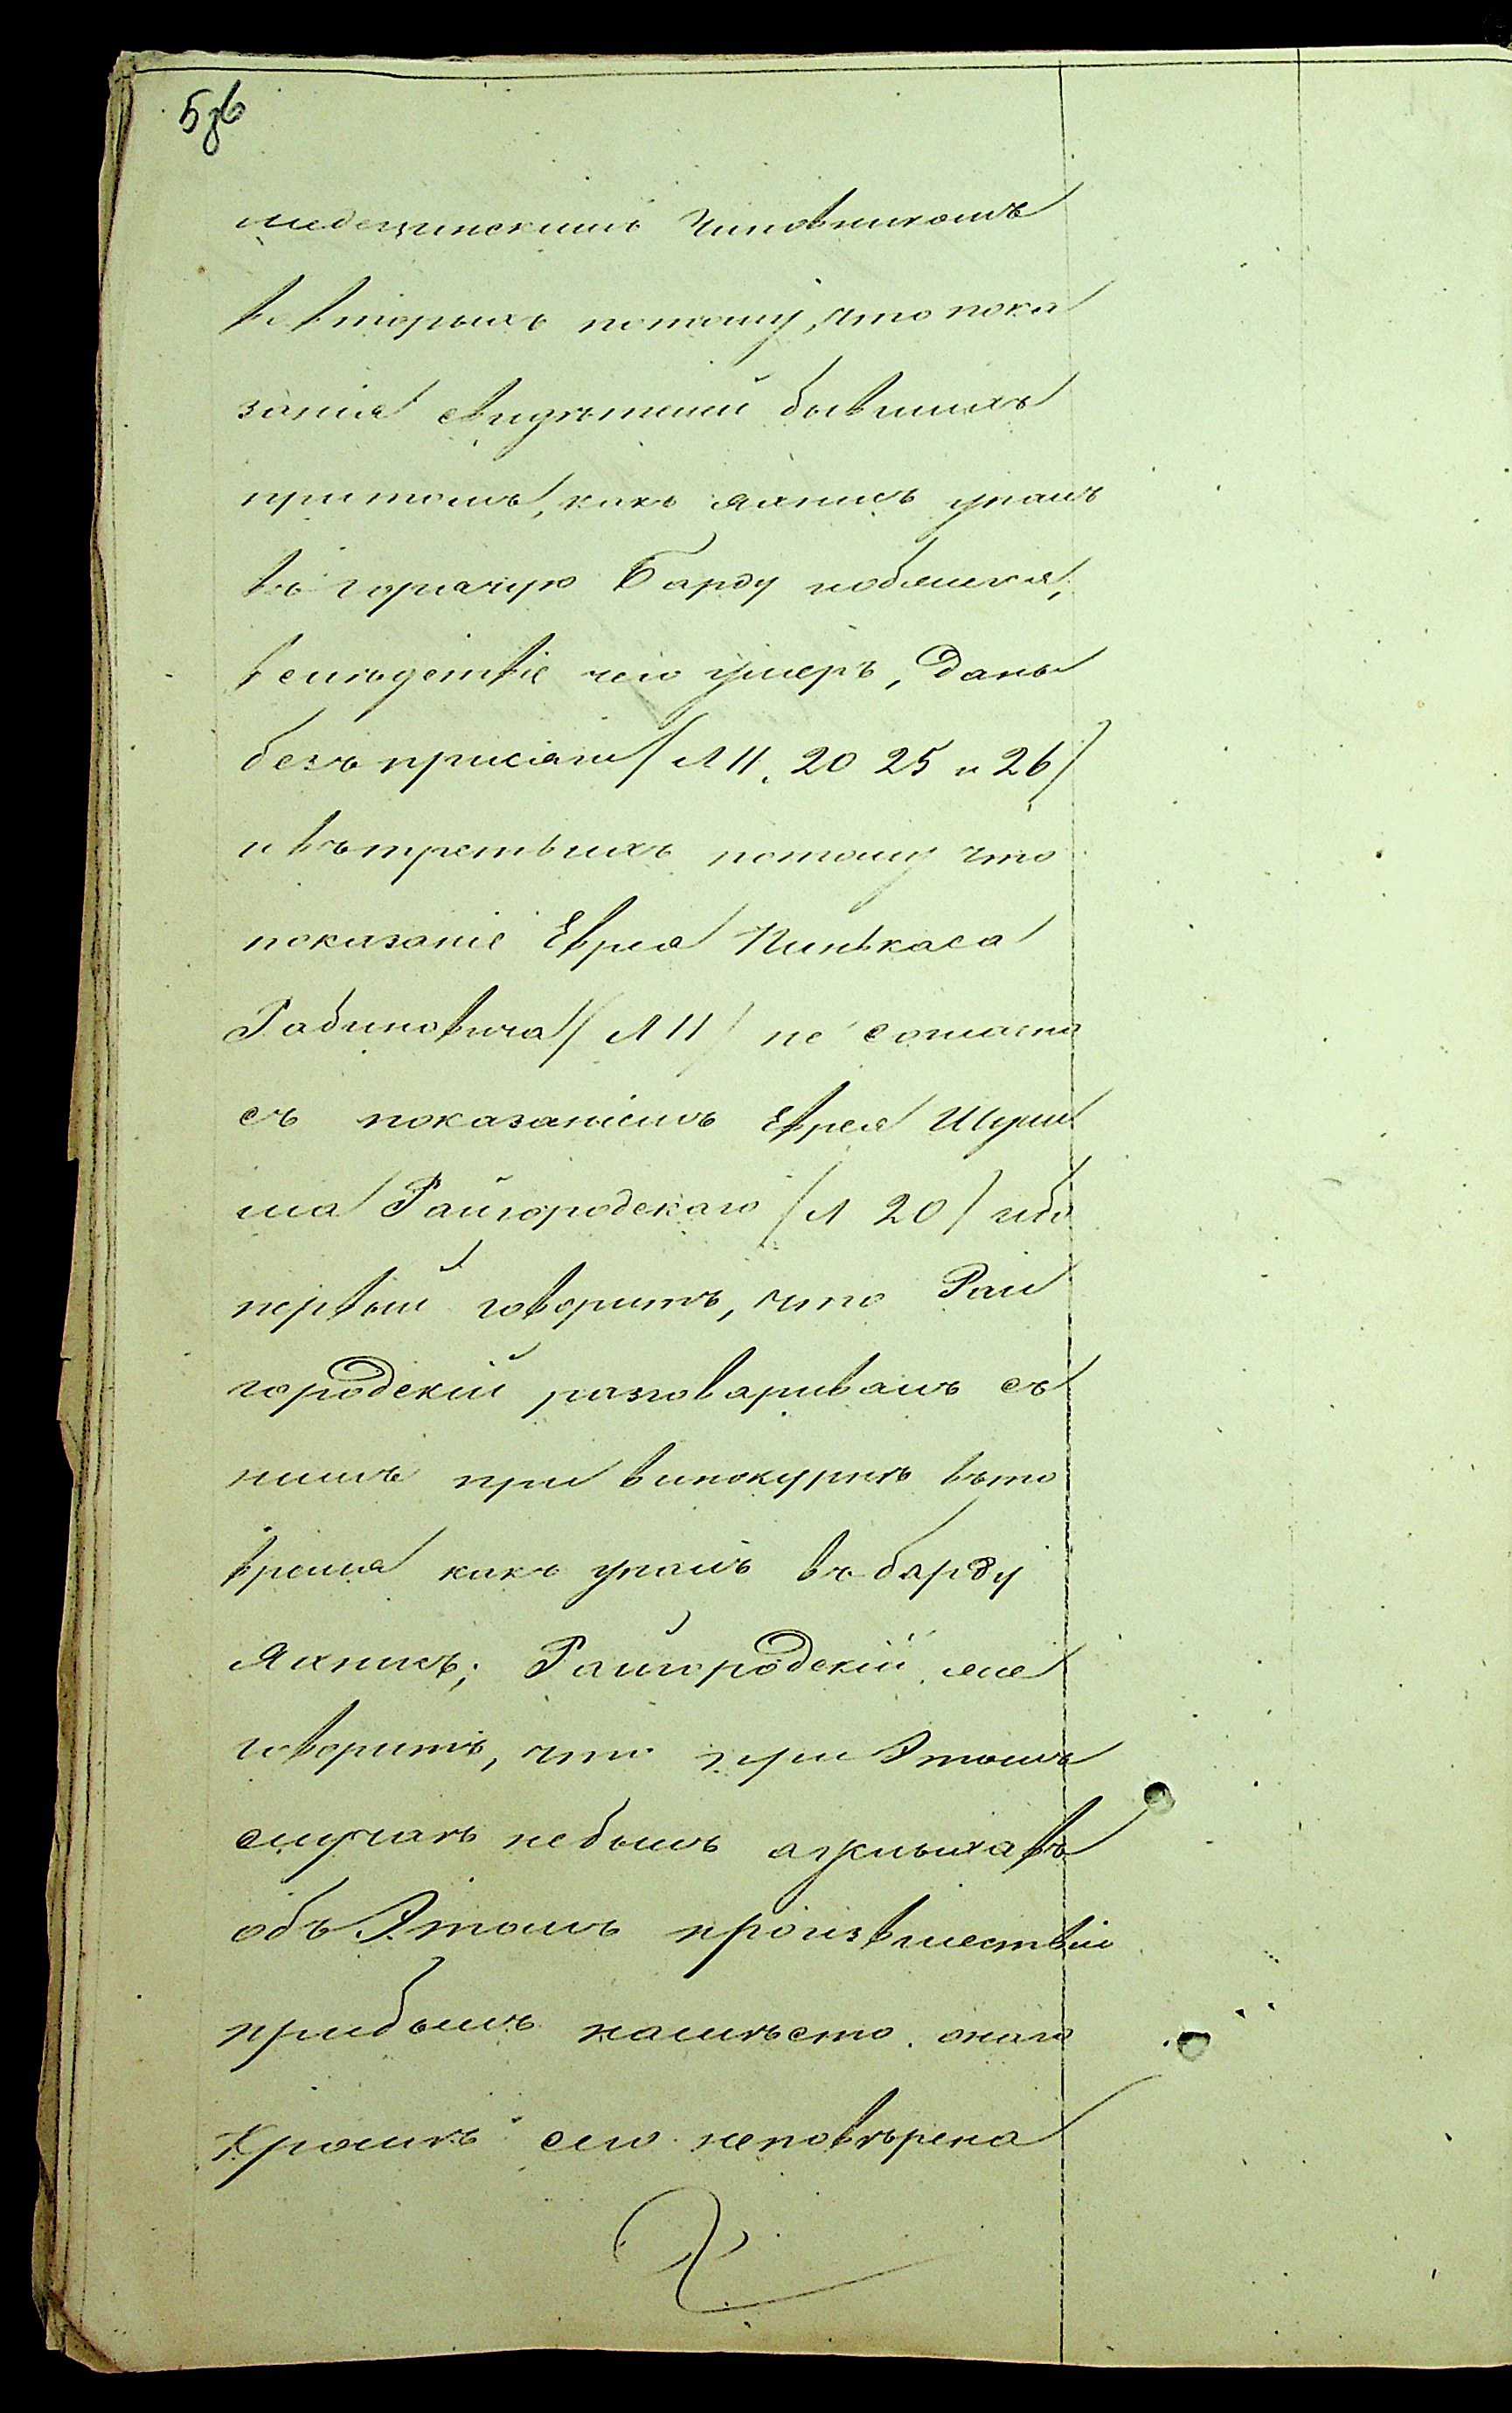 медецинскимъ Чиновникомъ
вовторыхъ потому, что пока
занія свидѣтелей бывшихъ
притомъ, какъ Яхникъ упалъ
въ горячую Барду и обжегся,
вслѣдствіе чего умеръ, даны
безъ присяги (Л 11. 20 25 и 26)
и вътретьихъ потому что
показаніе Еврея Пинькаса
Рабиновича (Л 11) не согласно
съ показаніемъ Еврея
Райгородскаго (Л 20) ибо
первый говоритъ, что Рай
городскій разговаривалъ съ
нимъ при винокурнѣ въто
время какъ упалъ въ барду
Яхникъ; Райгородскій же
говоритъ, что при Этомъ
случаѣ небылъ а услыхавъ
объ Этомъ произшествіи
прибылъ намѣсто онаго
Кромѣ сего неповѣрена